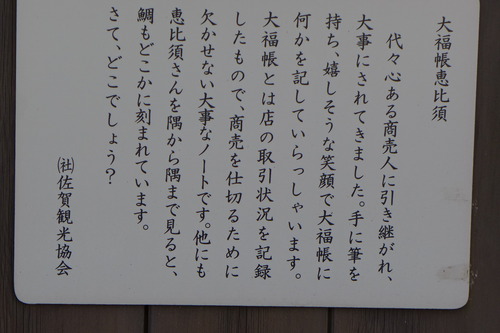 大福帳恵比須
代々心ある商売人に引き継がれ、
大事にされてきました。手に筆を
持ち、嬉しそうな笑顔で大福帳に
何かを記していらっしゃいます。
大福帳とは店の取引状況を記録
したもので、商売を仕切るために
欠かせない大事なノートです。他にも
恵比須さんを隅から隅まで見ると、
鯛もどこかに刻まれています。
さて、どこでしょう?
㈳佐賀観光協会